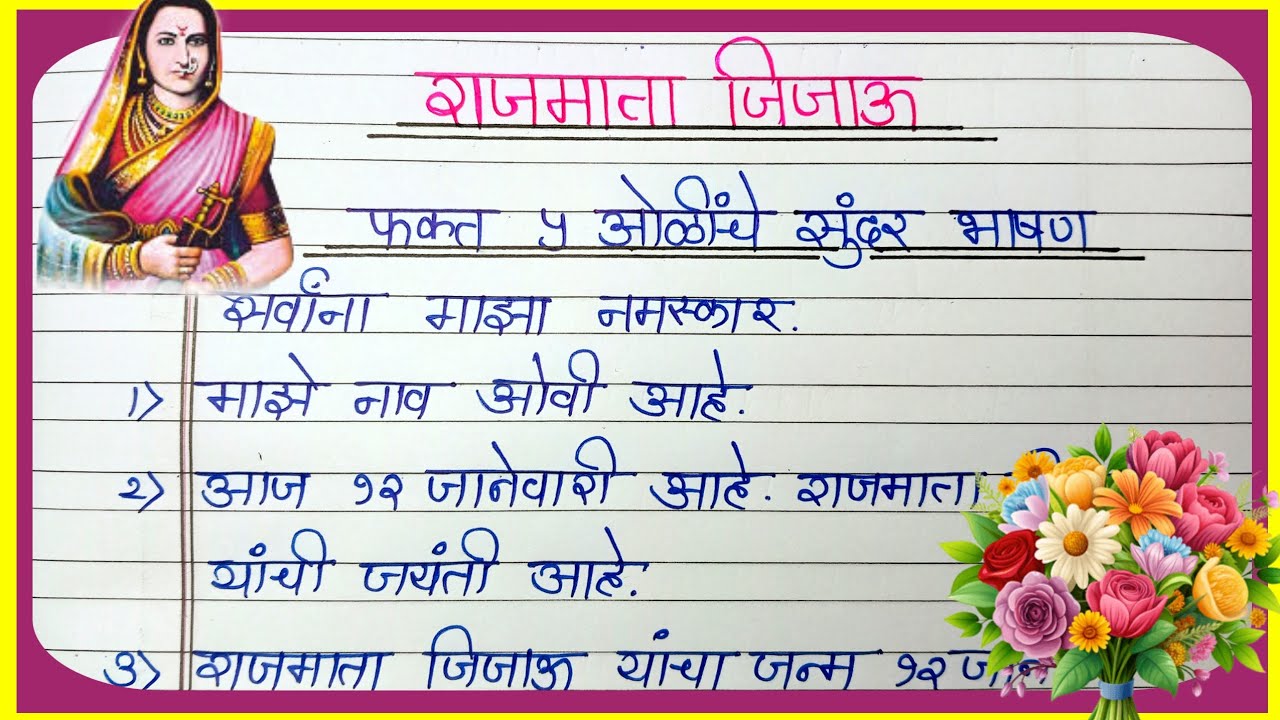 राजमाता जिजाऊ
फक्त ५ ओळींचे सुंदर भाषण
सर्वांना माझा नमस्कार.
१) माझे नाव ओवी आहे.
२) आज १२ जानेवारी आहे. राजमाता
यांची जयंती आहे.
३) राजमाता जिजाऊ यांचा जन्म १२